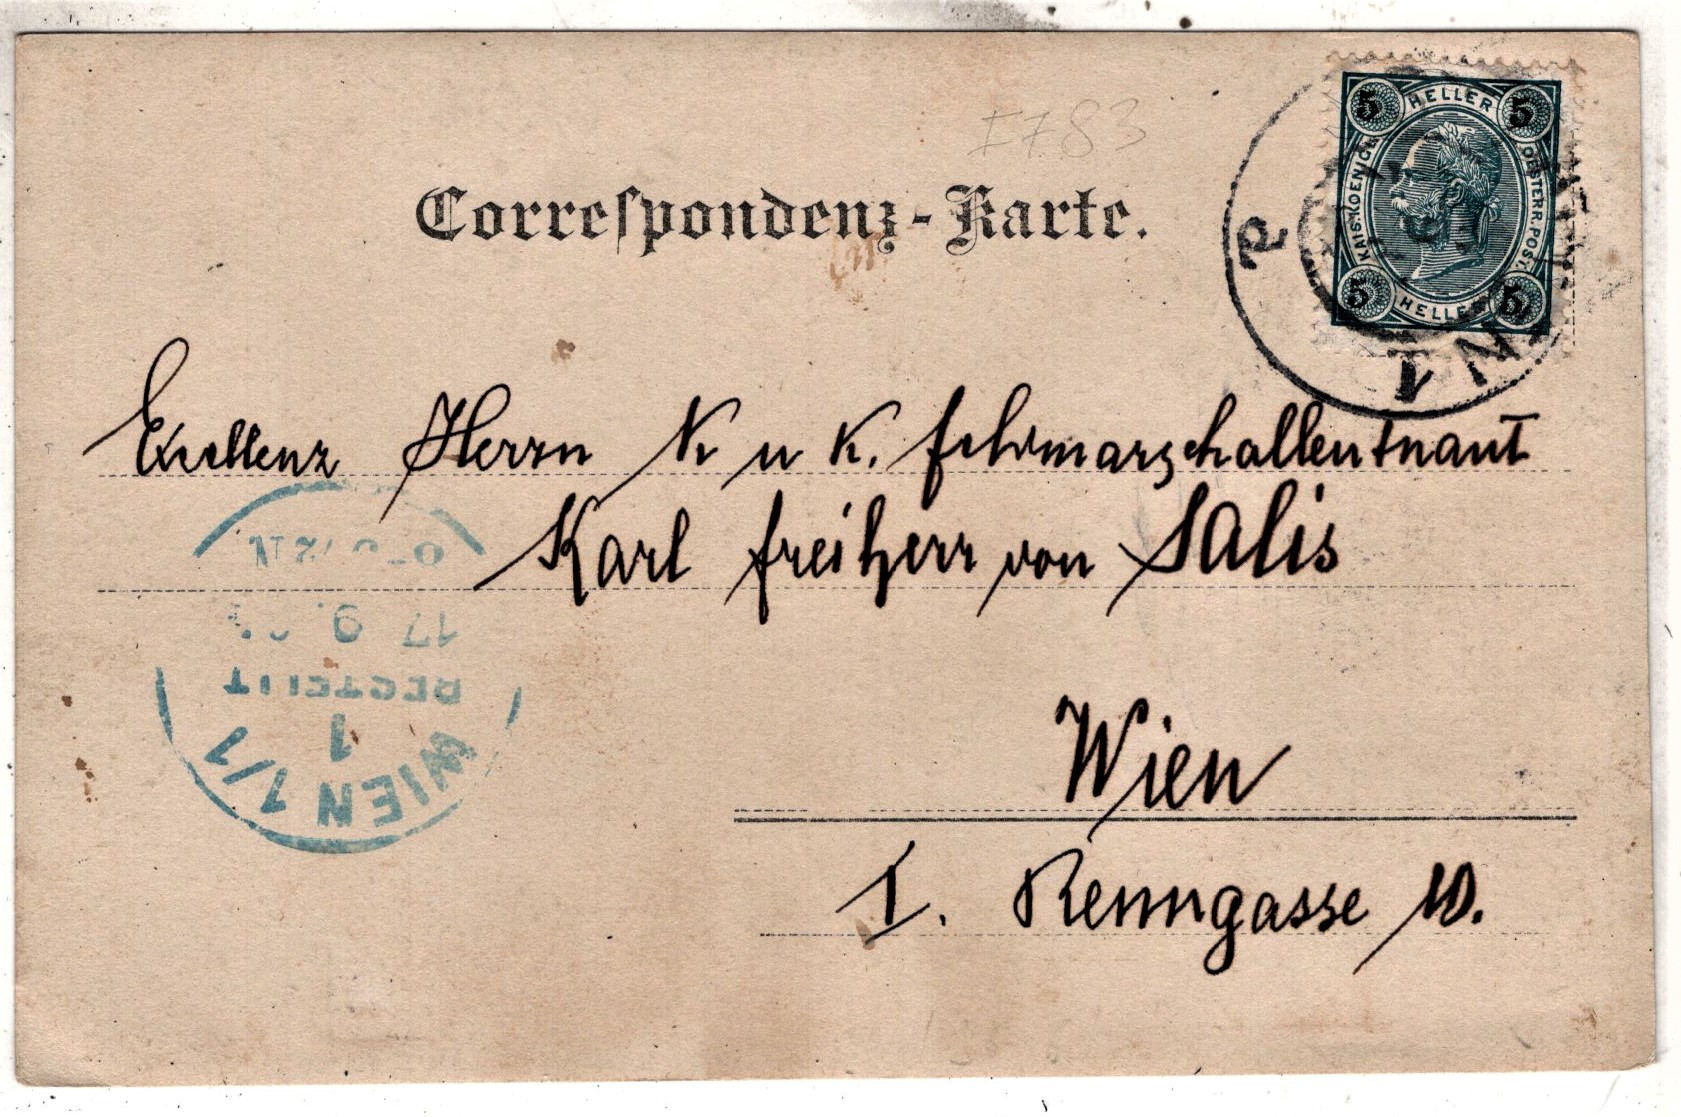 I783
Correspondenz-Karte.
5 HELLER 5
KAIS. KOENIGL. OESTERR. POST.
5 HELLER 5
WIEN 1
Exellenz Herrn K u K. feldmarschalleutnant
Karl freiherr von Salis
Wien
I. Renngasse 10.
WIEN 1/1
1
BESTELLT
17 9